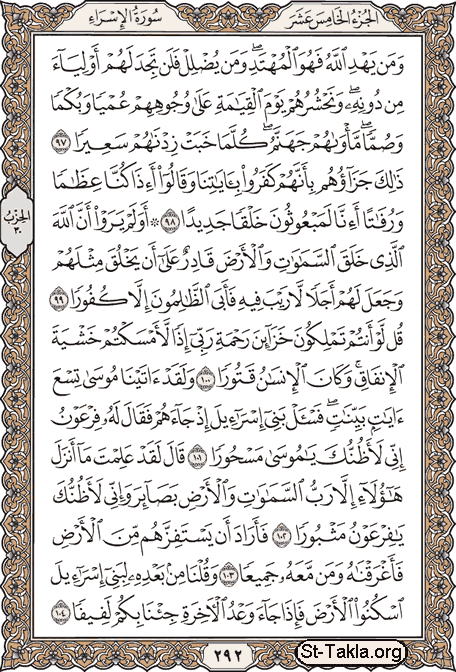 الجزء الخامس عشر
سورة الإسراء
وَمَن يَهْدِ ٱللَّهُ فَهُوَ ٱلْمُهْتَدِ ۖ وَمَن يُضْلِلْ فَلَن تَجِدَ لَهُمْ أَوْلِيَآءَ
مِن دُونِهِۦ ۖ وَنَحْشُرُهُمْ يَوْمَ ٱلْقِيَـٰمَةِ عَلَىٰ وُجُوهِهِمْ عُمْيًا وَبُكْمًا
وَصُمًّا ۖ مَّأْوَىٰهُمْ جَهَنَّمُ ۖ كُلَّمَا خَبَتْ زِدْنَـٰهُمْ سَعِيرًا ٩٧
ذَٰلِكَ جَزَآؤُهُم بِأَنَّهُمْ كَفَرُوا۟ بِـَٔايَـٰتِنَا وَقَالُوٓا۟ أَءِذَا كُنَّا عِظَـٰمًا
وَرُفَـٰتًا أَءِنَّا لَمَبْعُوثُونَ خَلْقًا جَدِيدًا ٩٨ ۞ أَوَلَمْ يَرَوْا۟ أَنَّ ٱللَّهَ
ٱلَّذِى خَلَقَ ٱلسَّمَـٰوَٰتِ وَٱلْأَرْضَ قَادِرٌ عَلَىٰٓ أَن يَخْلُقَ مِثْلَهُمْ
وَجَعَلَ لَهُمْ أَجَلًا لَّا رَيْبَ فِيهِ فَأَبَى ٱلظَّـٰلِمُونَ إِلَّا كُفُورًا ٩٩
قُل لَّوْ أَنتُمْ تَمْلِكُونَ خَزَآئِنَ رَحْمَةِ رَبِّىٓ إِذًا لَّأَمْسَكْتُمْ خَشْيَةَ
ٱلْإِنفَاقِ ۚ وَكَانَ ٱلْإِنسَـٰنُ قَتُورًا ١٠٠ وَلَقَدْ ءَاتَيْنَا مُوسَىٰ تِسْعَ
ءَايَـٰتٍۭ بَيِّنَـٰتٍ ۖ فَسْـَٔلْ بَنِىٓ إِسْرَٰٓءِيلَ إِذْ جَآءَهُمْ فَقَالَ لَهُۥ فِرْعَوْنُ
إِنِّى لَأَظُنُّكَ يَـٰمُوسَىٰ مَسْحُورًا ١٠١ قَالَ لَقَدْ عَلِمْتَ مَآ أَنزَلَ
هَـٰٓؤُلَآءِ إِلَّا رَبُّ ٱلسَّمَـٰوَٰتِ وَٱلْأَرْضِ بَصَآئِرَ وَإِنِّى لَأَظُنُّكَ
يَـٰفِرْعَوْنُ مَثْبُورًا ١٠٢ فَأَرَادَ أَن يَسْتَفِزَّهُم مِّنَ ٱلْأَرْضِ
فَأَغْرَقْنَـٰهُ وَمَن مَّعَهُۥ جَمِيعًا ١٠٣ وَقُلْنَا مِنۢ بَعْدِهِۦ لِبَنِىٓ إِسْرَٰٓءِيلَ
ٱسْكُنُوا۟ ٱلْأَرْضَ فَإِذَا جَآءَ وَعْدُ ٱلْـَٔاخِرَةِ جِئْنَا بِكُمْ لَفِيفًا ١٠٤
الحزب
٣٠
٢٩٢
St-Takla.org